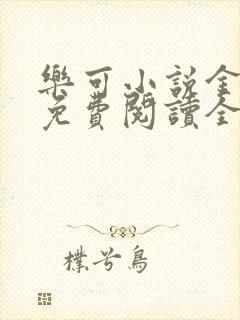 樂可小說全
免費閱讀全
樸兮鳥